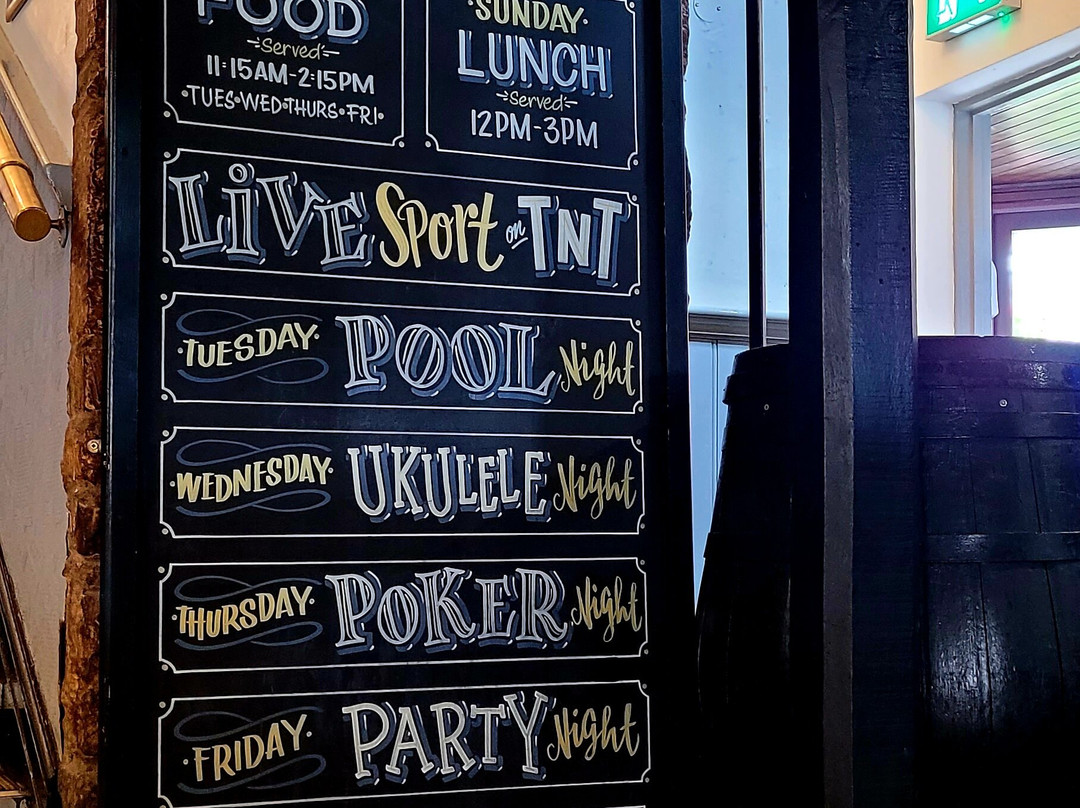 FOOD
Served
11:15AM-2:15PM
·TUES·WED·THURS·FRI·
·SUNDAY·
LUNCH
Served
12PM-3PM
LiVE Sport on TNT
·TUESDAY· POOL Night
·WEDNESDAY· UKULELE Night
·THURSDAY· POKER Night
·FRIDAY· PARTY Night